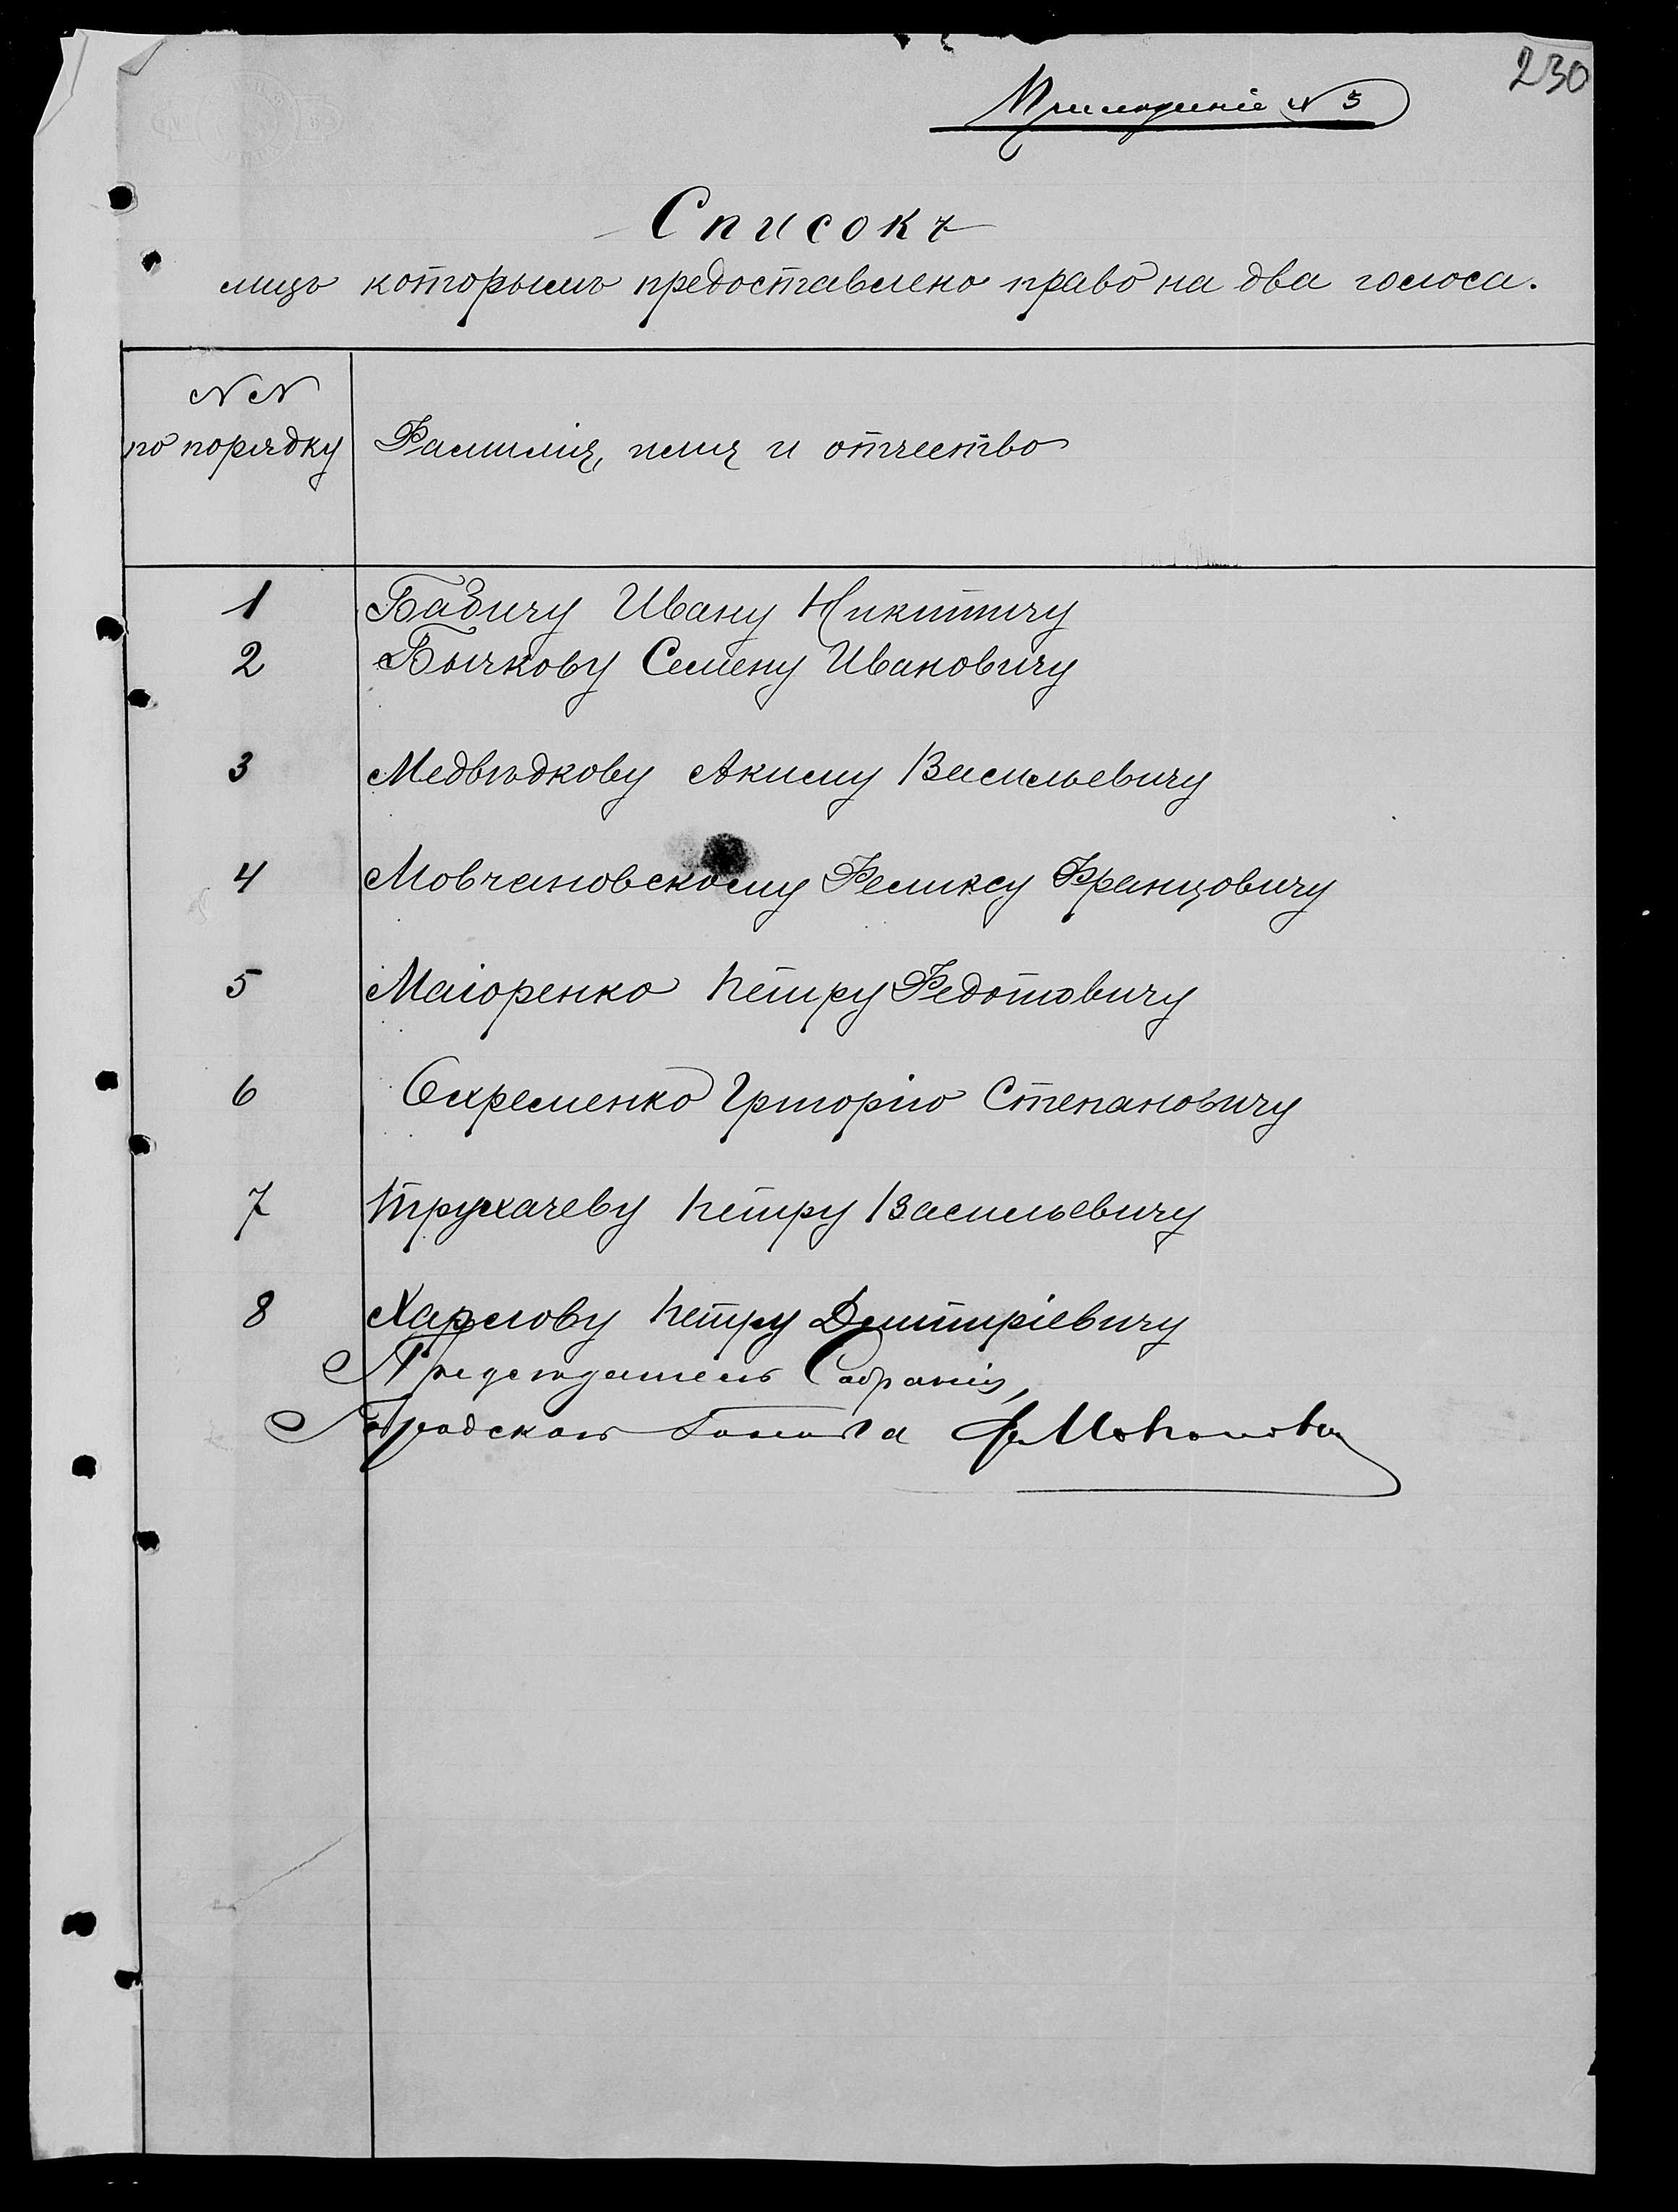 230
Приложеніе № 5
Списокъ
лицъ которымъ предоставлено право на два голоса.
№ №
по порядку
Фамилія, имя и отчество
1 Бабичу Ивану Никитичу
2 Бычкову Семену Ивановичу
3 Медвѣдкову Акиму Васильевичу
4 Мовчановскому Феликсу Францовичу
5 Маіоренко Петру Федотовичу
6 Охременко Григорію Степановичу
7 Трухачеву Петру Васильевичу
8 Харлову Петру Дмитріевичу
Предсѣдатель Собранія,
Городской Голова